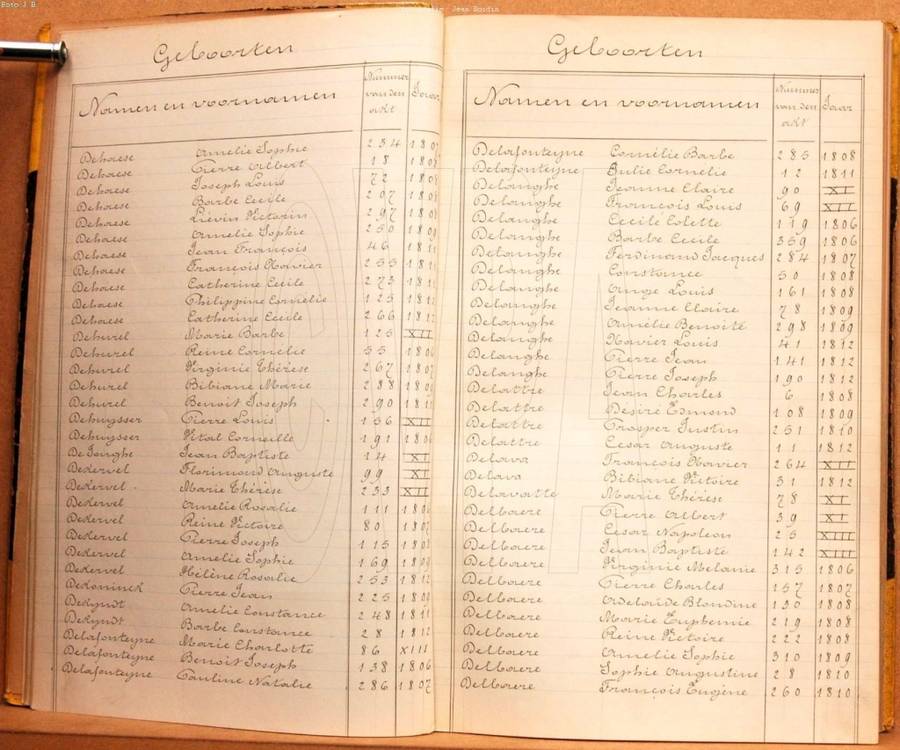 Foto J B
Jean Boudin
Geboorten
Namen en voornamen Nummer van den akt Jaar
Dehaese Amelie Sophie 234
Dehaese Pierre Albert 18
Dehaese Joseph Louis 72 1808
Dehaese Barbe Cecile 207
Dehaese Liévin Victorin 297
Dehaese Amelie Sophie 250 1809
Dehaese Jean François 46
Dehaese François Xavier 255
Dehaese Catherine Cecile 273
Dehaese Philippine Cornelie 125
Dehaese Catherine Cecile 266 1812
Dehurel Marie Barbe 125 XII
Dehurel Reine Cornélie 55
Dehurel Virginie Thérèse 267 1807
Dehurel Bibiane Marie 288
Dehurel Benoit Joseph 290 1811
Dehuysser Pierre Louis 156 XII
Dehuysser Vital Corneille 191 1806
DeJonghe Jean Baptiste 14 XI
Dekervel Florimond Auguste 99 XI
Dekervel Marie Thérèse 233 XII
Dekervel Amelie Rosalie 111
Dekervel Reine Victoire 80 1807
Dekervel Pierre Joseph 115
Dekervel Amelie Sophie 169 1809
Dekervel Hélène Rosalie 253 1812
Dekoninck Pierre Jean 225
Dekyndt Amelie Constance 248 1811
Dekyndt Barbe Constance 28 1812
Delafonteyne Marie Charlotte 86 XIII
Delafonteyne Benoit Joseph 138 1806
Delafonteyne Pauline Natalie 286 1807
Geboorten
Namen en voornamen Nummer van den akt Jaar
Delafonteyne Cornélie Barbe 285 1808
Delafonteyne Julie Cornelie 12 1811
Delanghe Jeanne Claire 90 XI
Delanghe François Louis 69 XII
Delanghe Cecile Colette 119 1806
Delanghe Barbe Cecile 359 1806
Delanghe Ferdinand Jacques 284 1807
Delanghe Constance 50 1808
Delanghe Ange Louis 161 1808
Delanghe Jeanne Claire 78 1809
Delanghe Amélie Benoite 298 1809
Delanghe Xavier Louis 41 1812
Delanghe Pierre Jean 141 1812
Delanghe Pierre Joseph 190 1812
Delattre Jean Charles 6 1808
Delattre Désiré Edmond 108 1809
Delattre Prosper Justin 251 1810
Delattre Cesar Auguste 11 1812
Delava François Xavier 264 XII
Delava Bibiane Victoire 31 1812
Delavatte Marie Thérèse 78 XI
Delbaere Pierre Albert 39 XI
Delbaere Cesar Napoleon 25 XIII
Delbaere Jean Baptiste 142 XIII
Delbaere Virginie Melanie 315 1806
Delbaere Pierre Charles 157 1807
Delbaere Adelaïde Blondine 130 1808
Delbaere Marie Euphemie 219 1808
Delbaere Reine Victoire 222 1808
Delbaere Amelie Sophie 310 1809
Delbaere Sophie Augustine 28 1810
Delbaere François Eugène 260 1810